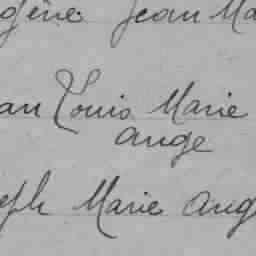 gène Jean Ma
an Louis Marie
ange
eph Marie Ang